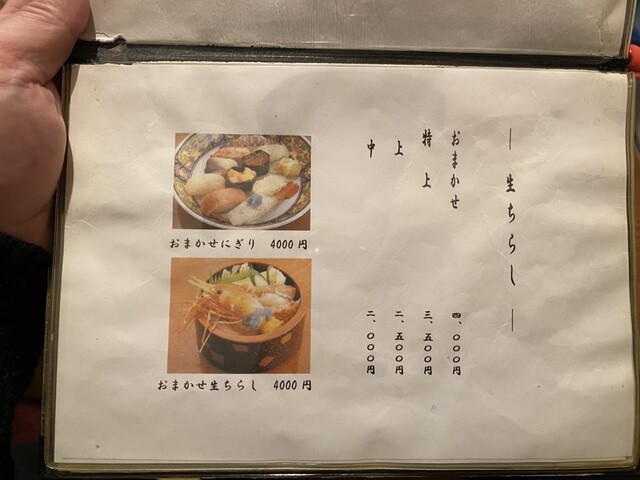 ― 生ちらし ―
おまかせ 四、〇〇〇円
特上 三、五〇〇円
上 二、五〇〇円
中 二、〇〇〇円
おまかせにぎり 4000円
おまかせ生ちらし 4000円